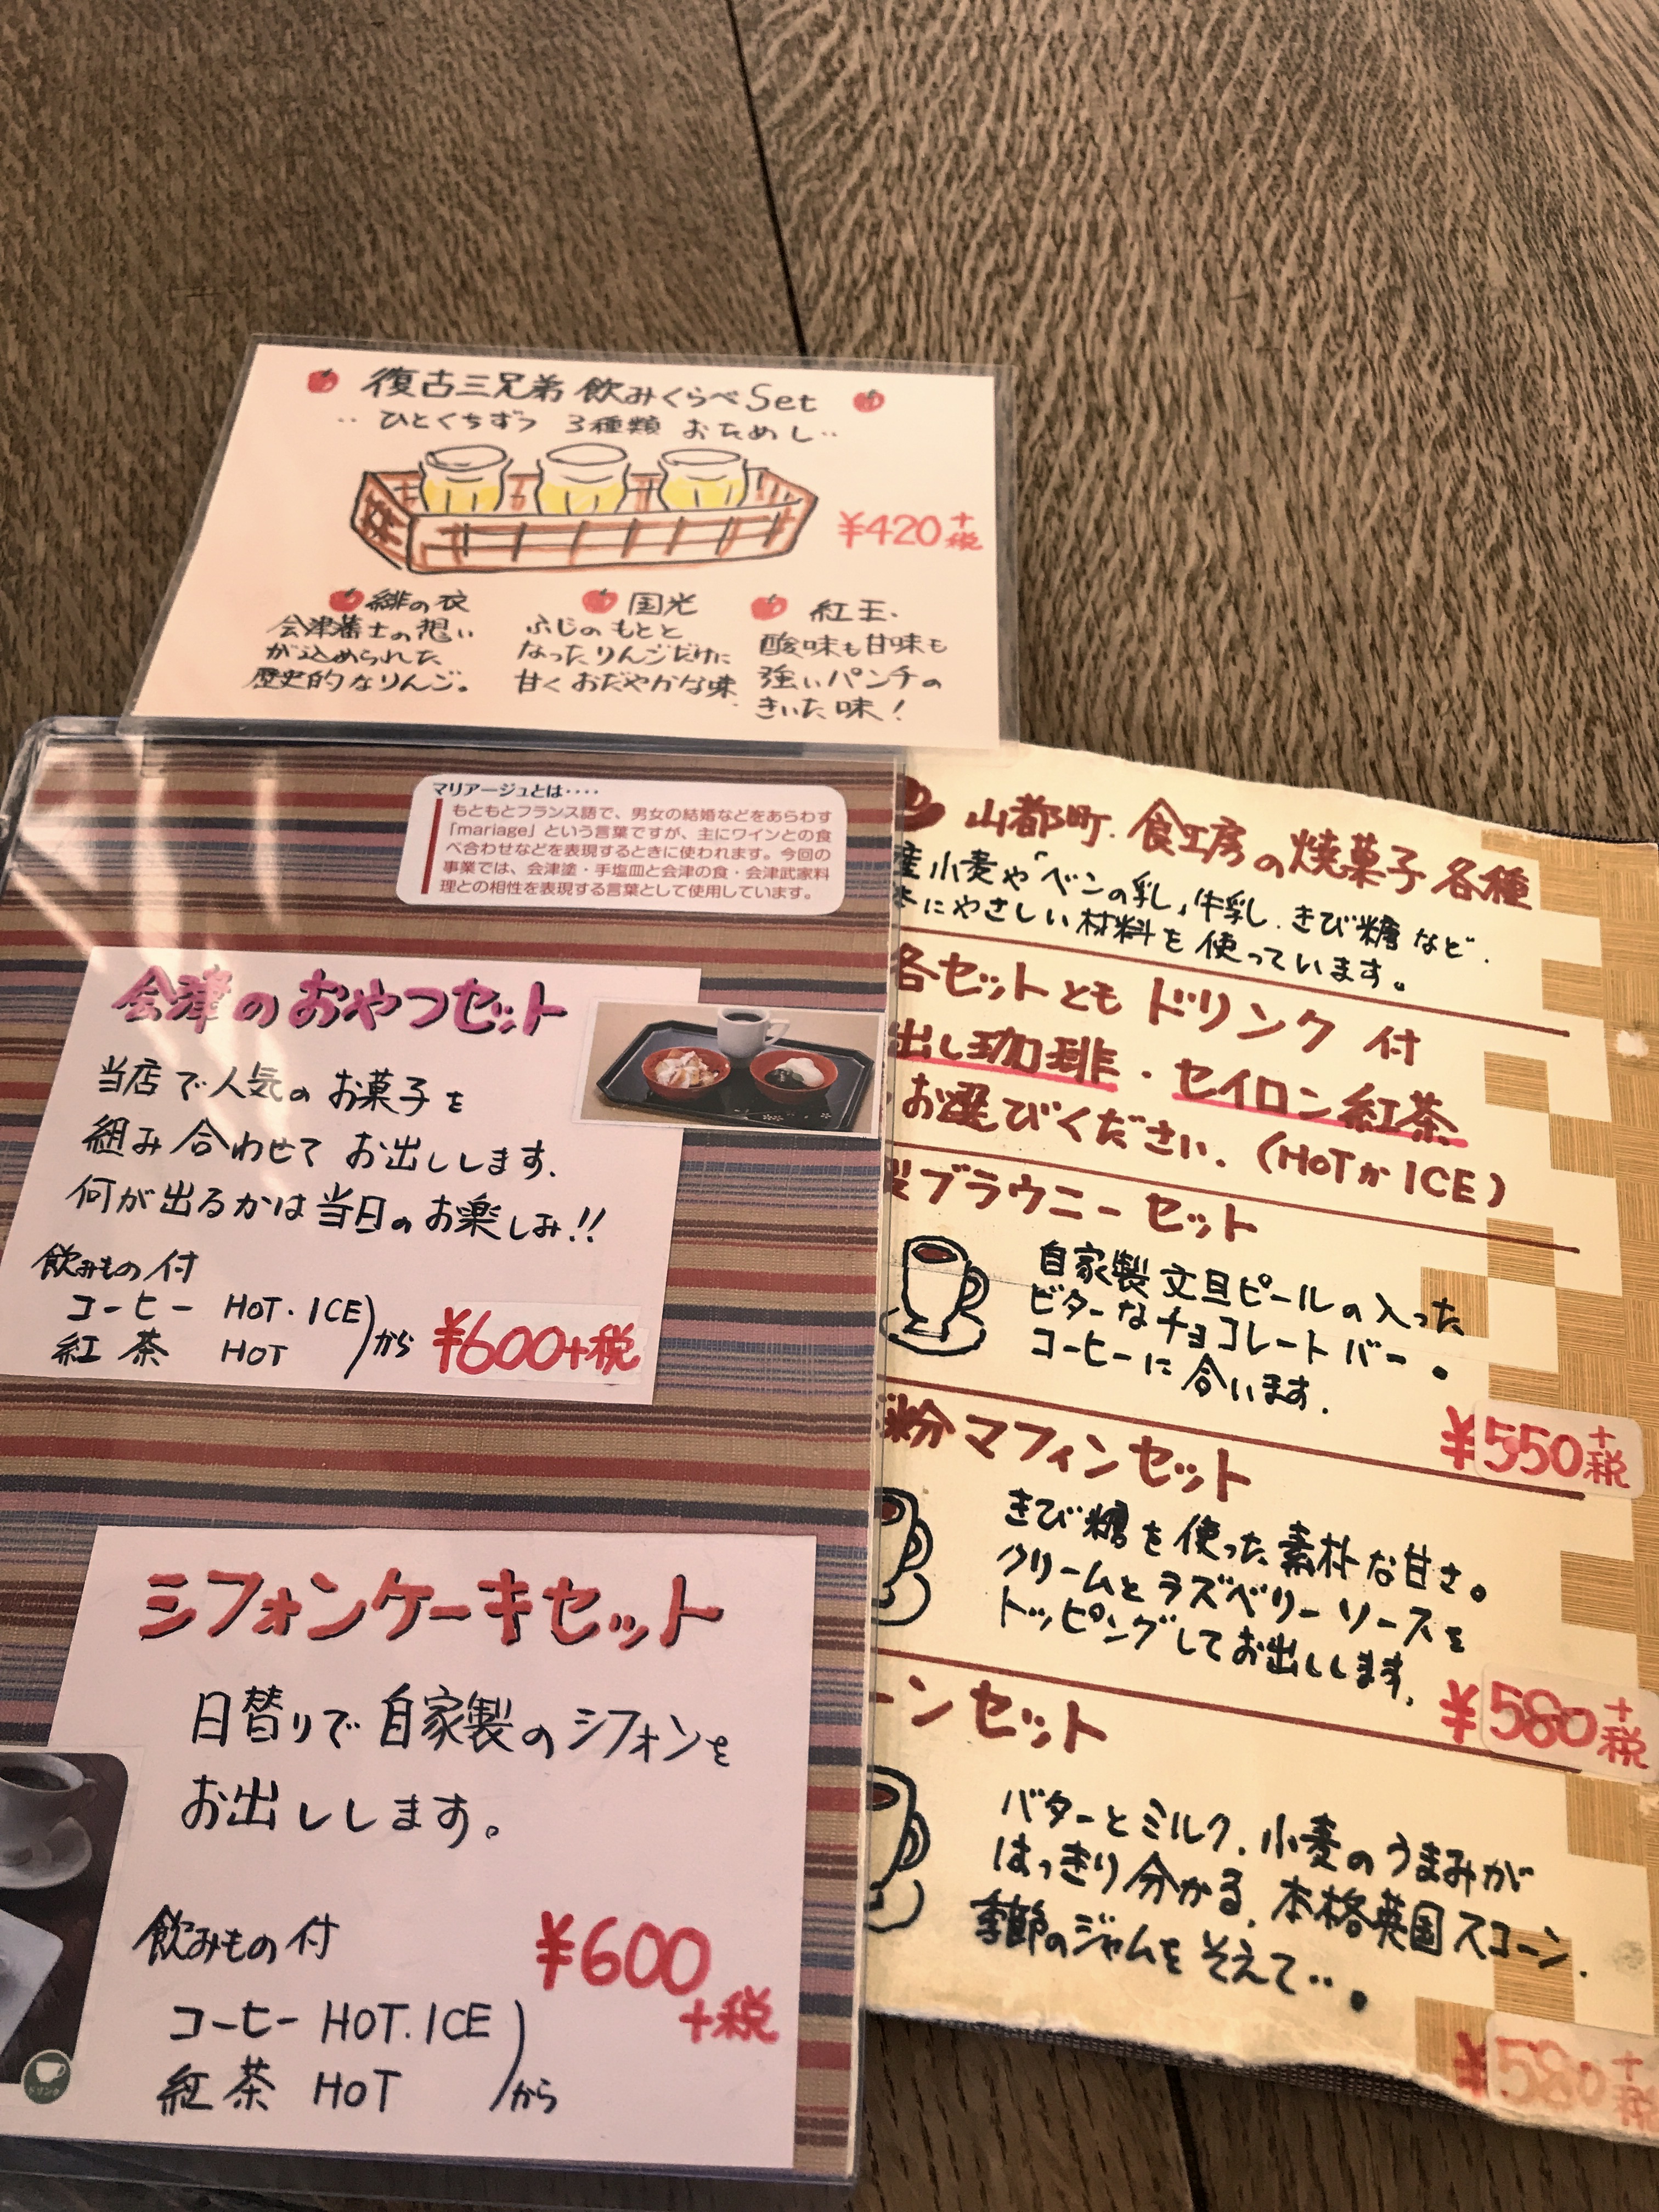 復古三兄弟 飲みくらべSet
‥ ひとくちずつ 3種類 おためし‥
¥420+税
緋の衣
会津藩士の想い
が込められた
歴史的なりんご。
国光
ふじのもとと
なったりんごだけに
甘くおだやかな味
紅玉、
酸味も甘味も
強いパンチの
きいた味!
マリアージュとは‥‥
もともとフランス語で、男女の結婚などをあらわす
「mariage」という言葉ですが、主にワインとの食
べ合わせなどを表現するときに使われます。今回の
事業では、会津塗・手塩皿と会津の食・会津武家料
理との相性を表現する言葉として使用しています。
会津のおやつセット
当店で人気のお菓子を
組み合わせて お出しします.
何が出るかは当日のお楽しみ!!
飲みもの付
コーヒー HOT・ICE
紅茶 HOT
から
¥600+税
シフォンケーキセット
日替りで自家製のシフォンを
お出しします。
飲みもの付
コーヒー HOT.ICE
紅茶 HOT
から
¥600
+税
ドリンク
山都町.食工房の焼菓子 各種
産小麦や「べンの乳」牛乳.きび糖など.
にやさしい材料を使っています。
各セットとも ドリンク付
出し珈琲・セイロン紅茶
お選びください.(HOTかICE)
製ブラウニーセット
自家製文旦ピールの入った
ビターなチョコレートバー。
コーヒーに合います.
¥550+税
粉マフィンセット
きび糖を使った素朴な甘さ。
クリームとラズベリーソースを
トッピングしてお出しします.
¥580+税
ーンセット
バターとミルク.小麦のうまみが
はっきり分かる.本格英国スコーン.
季節のジャムをそえて‥。
¥580+税